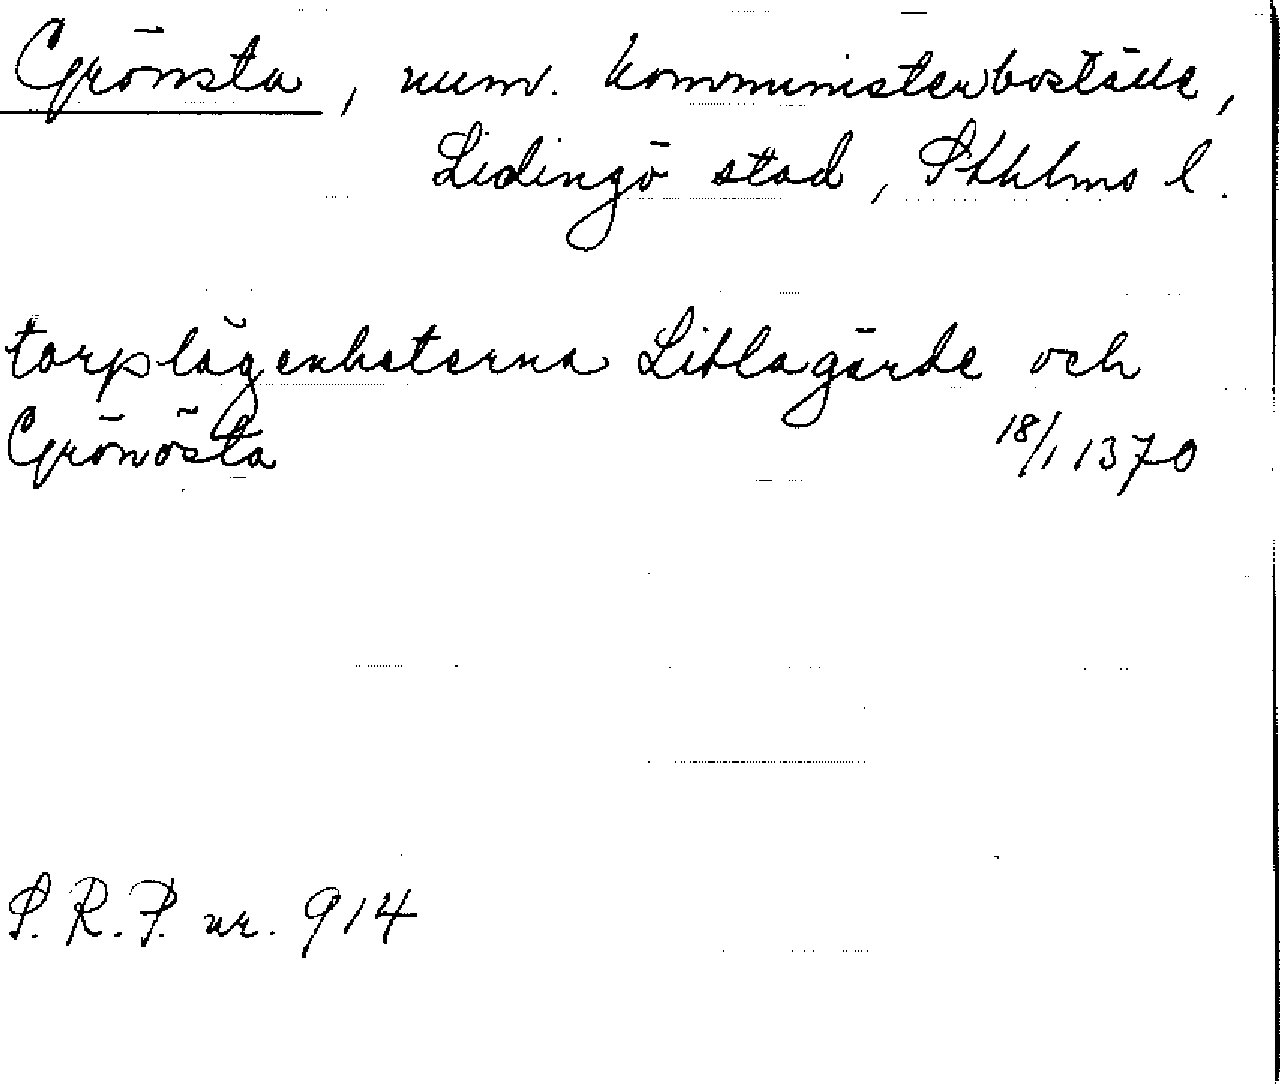 Grönsta, num. komministerboställe,
Lidingö stad, Sthlms l.
torplägenheterna Litlagärde och
Grönösta 18/1 1370
S.R.P. nr. 914